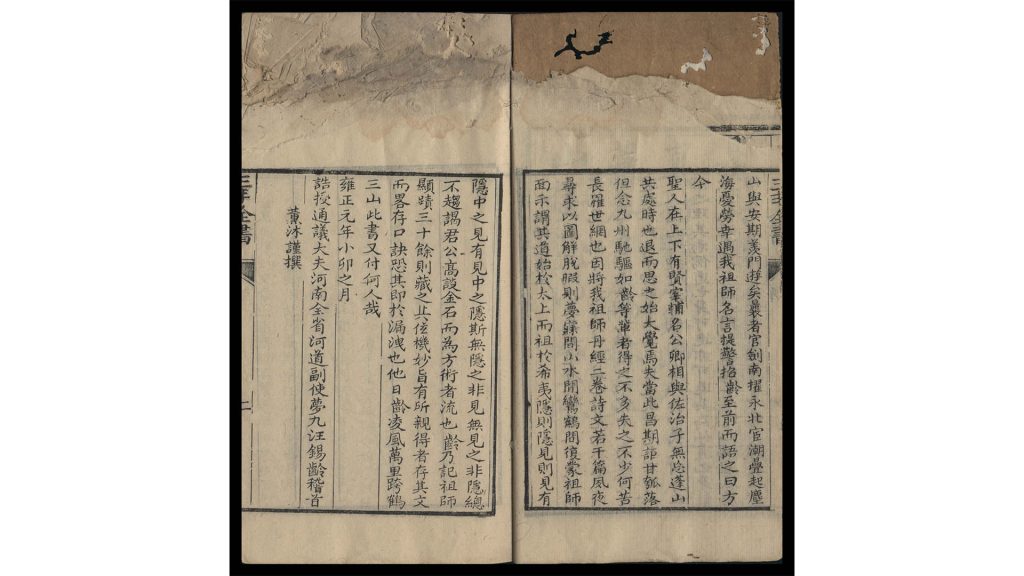 山與安期羨門遊矣曩者官劍南擢永北宦潮疊起塵
海憂勞幸遇我祖師名言提警招齡至前而語之曰方
今
聖人在上下有賢宰輔名公卿相與佐治子無戀蓬山
共處時也退而思之始大覺焉夫當此昌期詎甘瓠落
但念九州馳驅如齡等輩者得之不多失之不少何苦
長羅世網也因將我祖師丹經二卷詩文若干篇夙夜
尋求以圖解脫暇則夢寐間山水間鸞鶴間復蒙祖師
面示謂其道始於太上而祖於希夷隱則隱見則見有
隱中之見有見中之隱斯無隱之非見無見之非隱總
不趨謁君公高設金石而為方術者流也齡乃記祖師
顯蹟三十餘則藏之其伭機妙旨有所親得者存其文
而畧存口訣恐其即於漏洩也他日齡凌風萬里跨鶴
三山此書又付何人哉
雍正元年小卯之月
誥授通議大夫河南全省河道副使夢九汪錫齡稽首
薰沐謹撰
三丰全書
二